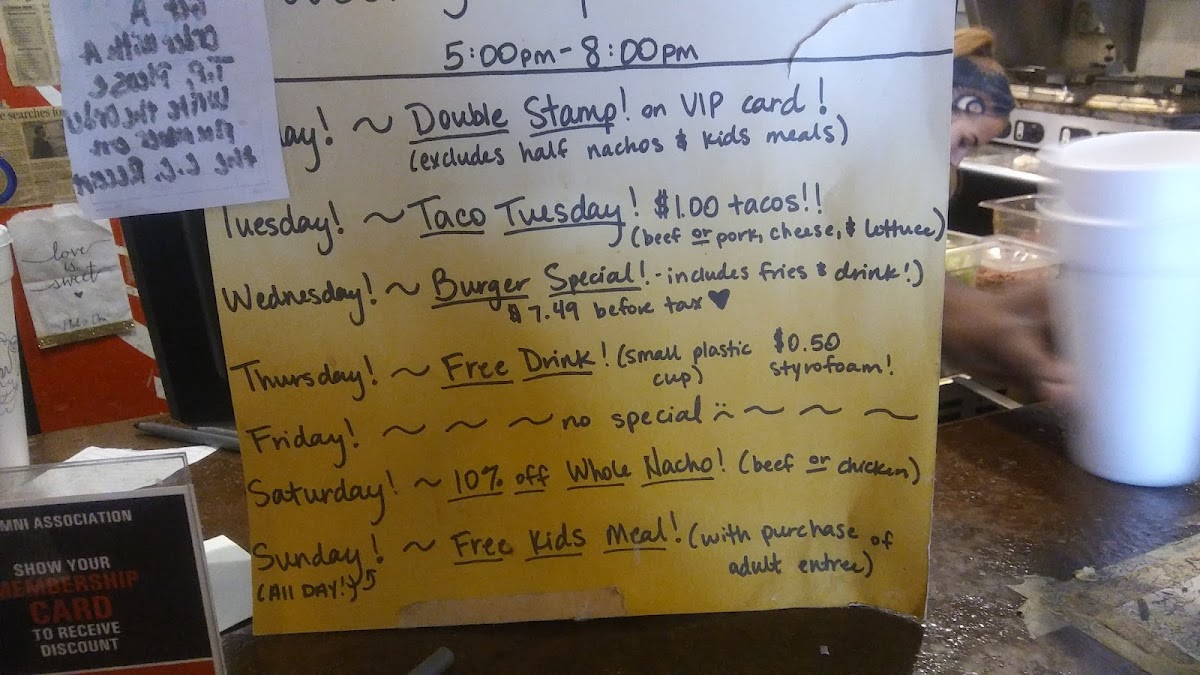 5:00pm - 8:00pm
ay! ~ Double Stamp! on VIP card!
(excludes half nachos & kids meals)
Tuesday! ~ Taco Tuesday! $1.00 tacos!!
(beef or pork, cheese, & lettuce)
Wednesday! ~ Burger Special! - includes fries & drink!)
$7.49 before tax ♥
Thursday! ~ Free Drink! (small plastic cup) $0.50 styrofoam!
Friday! ~ ~ ~ no special ~ ~ ~
Saturday! ~ 10% off Whole Nacho! (beef or chicken)
Sunday! ~ Free Kids Meal! (with purchase of
(All DAY!) adult entree)
love
is
sweet
e searches fo
MNI ASSOCIATION
SHOW YOUR
MEMBERSHIP
CARD
TO RECEIVE
DISCOUNT